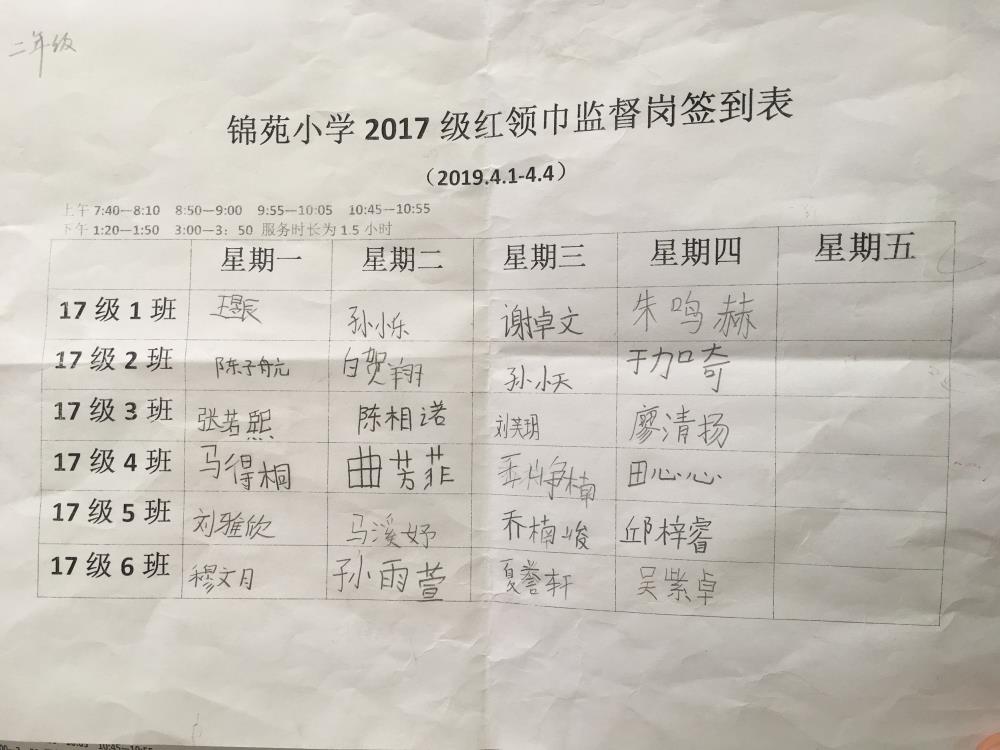 二年级
锦苑小学 2017 级红领巾监督岗签到表
（2019.4.1-4.4）
上午 7:40—8:10 8:50—9:00 9:55—10:05 10:45—10:55
下午 1:20—1:50 3:00—3：50 服务时长为 1.5 小时
星期一 星期二 星期三 星期四 星期五
17 级 1 班 王昱辰 孙小乐 谢卓文 朱鸣赫
17 级 2 班 陈子航 白贺翔 孙小天 于加奇
17 级 3 班 张若熙 陈相诺 刘芙玥 廖清扬
17 级 4 班 马得桐 曲芳菲 田心心
17 级 5 班 刘雅欣 马溪妤 乔楠峻 邱梓睿
17 级 6 班 穆文月 孙雨萱 夏誉轩 吴紫卓
10:45—10:55